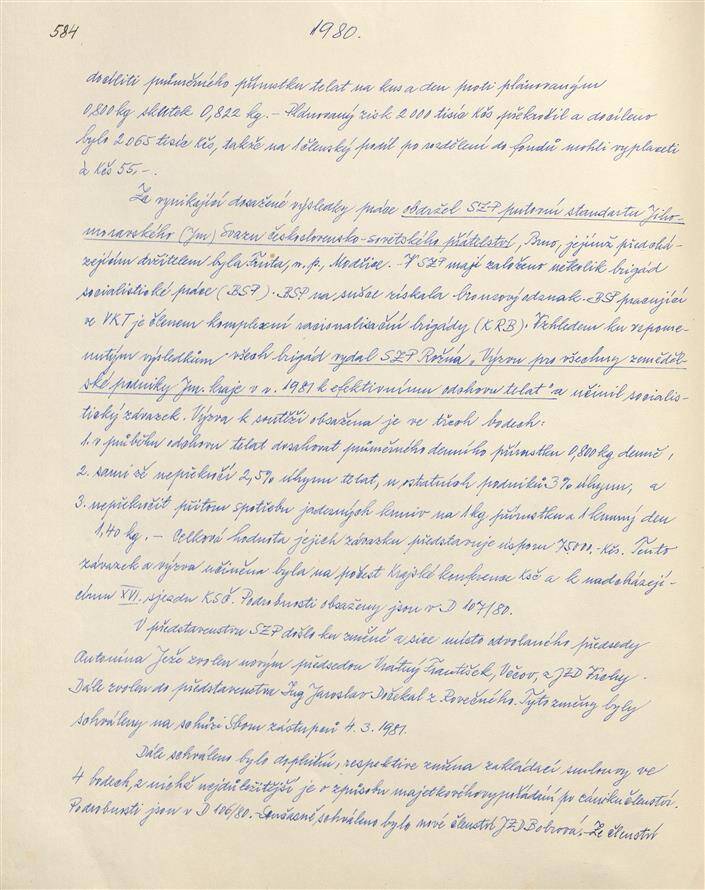 584
1980.
docíliti průměrného přírustku telat na kus a den proti plánovaným
0,800 kg skutek 0,822 kg. – Plánovaný zisk 2 000 tisíc Kčs překročil a docíleno
bylo 2 065 tisíc Kčs, takže na 1 členský podíl po rozdělení do fondů mohli vyplaceti
à Kčs 55,–.
Za vynikající dosažené výsledky práce obdržel SZP putovní standartu Jiho-
moravského (Jm) Svazu československo-sovětského přátelství, Brno, jejímž předchá-
zejícím držitelem byla Fruta, n. p., Modřice. – V SZP mají založeno několik brigád
socialistické práce (BSP). BSP na sušce získala bronzový odznak. BSP pracující
ve VKT je členem komplexní racionalisační brigády (KRB). Vzhledem ku vzpome-
nutým výsledkům všech brigád vydal SZP Rožná „Výzvu pro všechny zeměděl-
ské podniky Jm. kraje v r. 1981 k efektivnímu odchovu telat" a učinil socialis-
tický závazek. Výzva k soutěži obsažena je ve třech bodech:
1. v průběhu odchovu telat dosahovat průměrného denního přírustku 0,800 kg denně,
2. sami že nepřekročí 2,5% úhynu telat, u ostatních podniků 3% úhynu, a
3. nepřekročit přitom spotřebu jaderných krmiv na 1 kg přírustku a 1 krmný den
1,40 kg. – Celková hodnota jejich závazku představuje úsporu 75000.- Kčs. Tento
závazek a výzva učiněna byla na počest Krajské konference KSČ a k nadcházejí-
címu XVI. sjezdu KSČ. Podrobnosti obsaženy jsou v D 107/80.
V představenstvu SZP došlo ku změně a sice místo odvolaného předsedy
Antonína Ježe zvolen novým předsedou Vrátný František, Věčov, z JZD Vrchy.
Dále zvolen do představenstva Ing Jaroslav Dočekal z Rovečného. Tyto změny byly
schváleny na schůzi Sboru zástupců 4. 3. 1981.
Dále schváleno bylo doplnění, respektive změna zakládací smlouvy ve
4 bodech, z nichž nejdůležitější je o způsobu majetkového vypořádání po zániku členství.
Podrobnosti jsou v D 106/80. – Současně schváleno bylo nové členství JZD Bobrová. – Ze členství